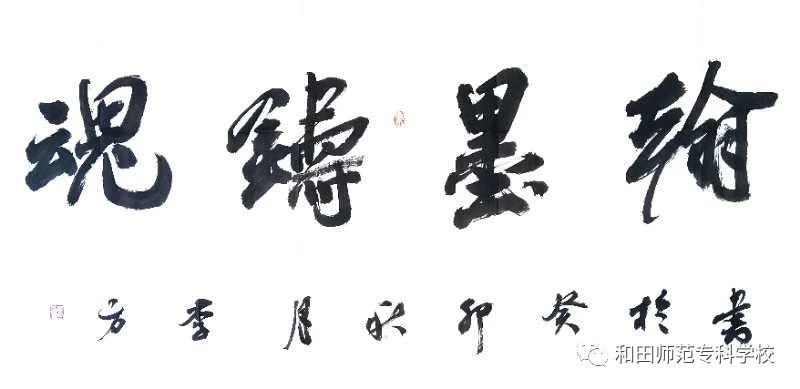 翰墨鑄魂
書於癸卯秋月李方
和田师范专科学校